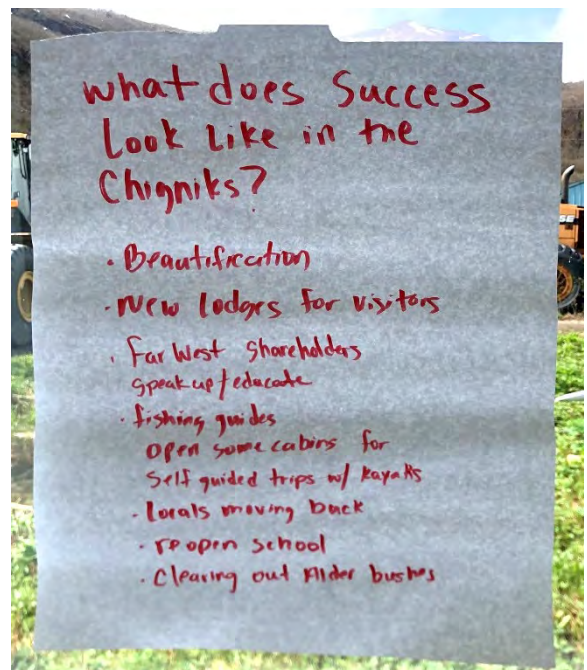 what does Success
Look Like in the
Chigniks?
· Beautification
· New lodges for visitors
· Far West Shareholders
speak up / educate
· fishing guides
open some cabins for
Self guided trips w/ kayaks
· Locals moving back
· reopen school
· Clearing out Alder bushes
SE